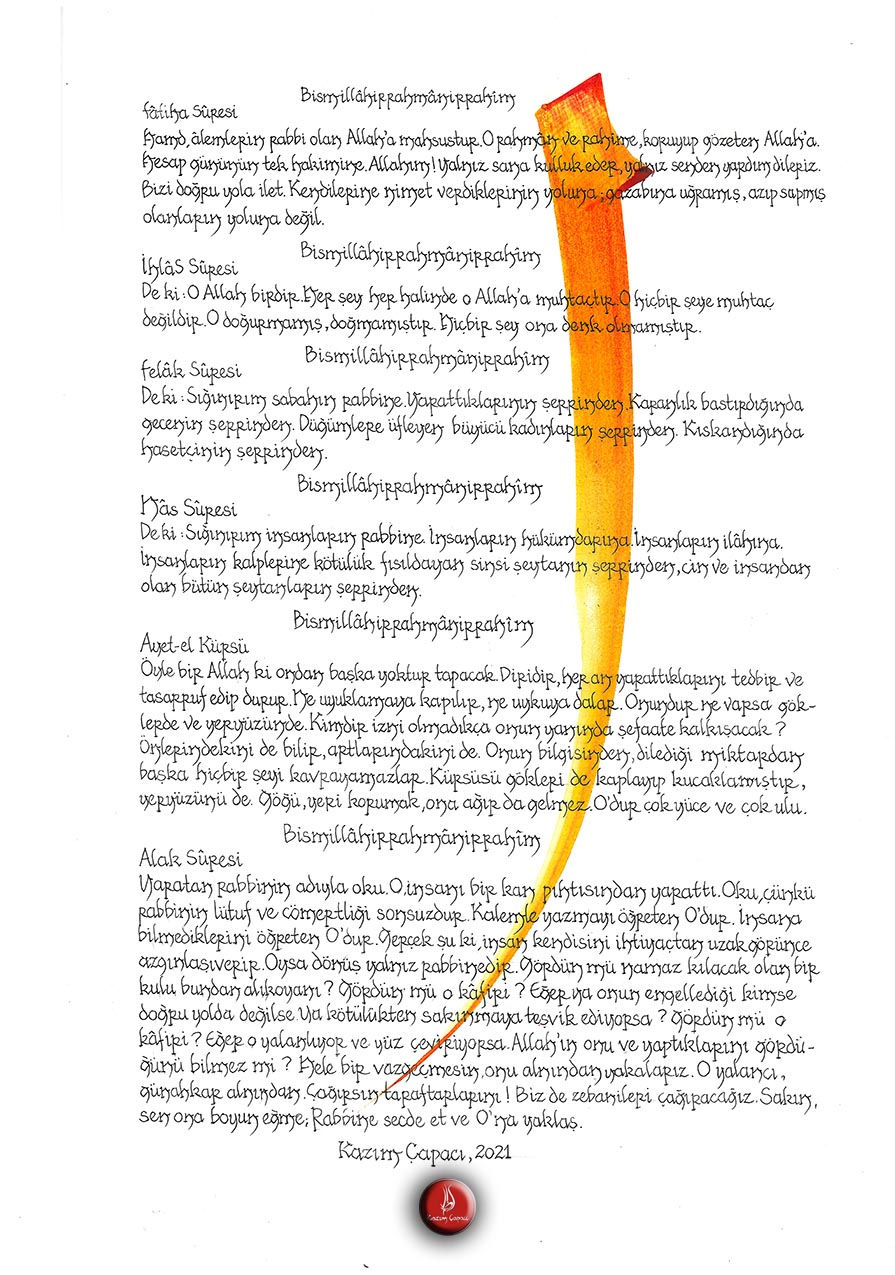 Bismillâhirrahmânirrahîm
fâtiha Sûresi
Hamd, âlemlerin rabbi olan Allah'a mahsustur. O rahmân ve rahime, koruyup gözeten Allah'a.
Hesap gününün tek hakimine. Allahım! Yalnız sana kulluk eder, yalnız senden yardım dileriz.
Bizi doğru yola ilet. Kendilerine nimet verdiklerinin yoluna; gazabına uğramış, azıp sapmış
olanların yoluna değil.
Bismillâhirrahmânirrahîm
İhlâS Sûresi
De ki: O Allah birdir. Her şey her halinde o Allah'a muhtaçtır. O hiçbir şeye muhtaç
değildir. O doğurmamış, doğmamıştır. Hiçbir şey ona denk olmamıştır.
Bismillâhirrahmânirrahîm
felâk Sûresi
De ki: Sığınırım sabahın rabbine. Yarattıklarının şerrinden. Karanlık bastırdığında
gecenin şerrinden. Düğümlere üfleyen büyücü kadınların şerrinden. Kıskandığında
hasetçinin şerrinden.
Bismillâhirrahmânirrahîm
Nâs Sûresi
De ki: Sığınırım insanların rabbine. İnsanların hükümdarına. İnsanların ilâhına.
İnsanların kalplerine kötülük fısıldayan sinsi şeytanın şerrinden, cin ve insandan
olan bütün şeytanların şerrinden.
Bismillâhirrahmânirrahîm
Ayet-el Kürsü
Öyle bir Allah ki ondan başka yoktur tapacak. Diridir, her an yarattıklarını tedbir ve
tasarruf edip durur. Ne uyuklamaya kapılır, ne uykuya dalar. Onundur ne varsa gök-
lerde ve yeryüzünde. Kimdir izni olmadıkça onun yanında şefaate kalkışacak?
Önlerindekini de bilir, artlarındakini de. Onun bilgisinden, dilediği miktardan
başka hiçbir şeyi kavrayamazlar. Kürsüsü gökleri de kaplayıp kucaklamıştır,
yeryüzünü de. Göğü, yeri korumak, ona ağır da gelmez. O'dur çok yüce ve çok ulu.
Bismillâhirrahmânirrahîm
Alak Sûresi
Yaratan rabbinin adıyla oku. O, insanı bir kan pıhtısından yarattı. Oku, çünkü
rabbinin lütuf ve cömertliği sonsuzdur. Kalemle yazmayı öğreten O'dur. İnsana
bilmediklerini öğreten O'dur. Gerçek şu ki, insan kendisini ihtiyaçtan uzak görünce
azgınlaşıverir. Oysa dönüş yalnız rabbinedir. Gördün mü namaz kılacak olan bir
kulu bundan alıkoyanı? Gördün mü o kâfiri? Eğer ya onun engellediği kimse
doğru yolda değilse. Ya kötülükten sakınmaya teşvik ediyorsa? Gördün mü o
kâfiri? Eğer o yalanlıyor ve yüz çeviriyorsa. Allah'ın onu ve yaptıklarını gördü-
ğünü bilmez mi? Hele bir vazgeçmesin, onu alnından yakalarız. O yalancı,
günahkar alnından. Çağırsın taraftarlarını! Biz de zebanileri çağıracağız. Sakın,
sen ona boyun eğme; Rabbine secde et ve O'na yaklaş.
Kazım Çapacı, 2021
Kazım Çapacı